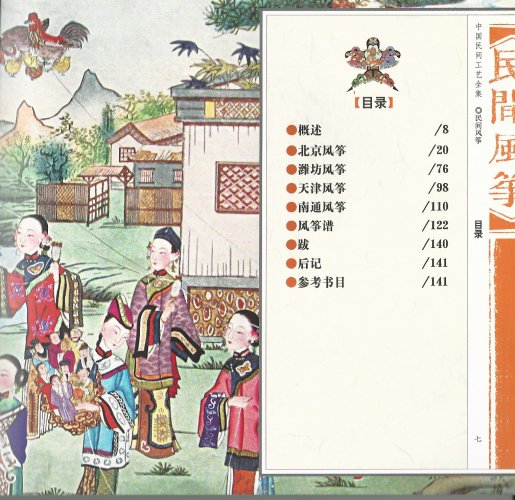 【目录】
●概述 /8
●北京风筝 /20
●潍坊风筝 /76
●天津风筝 /98
●南通风筝 /110
●风筝谱 /122
●跋 /140
●后记 /141
●参考书目 /141
中国民间工艺全集 ◎民间风筝
【民間風筝】
目录
七